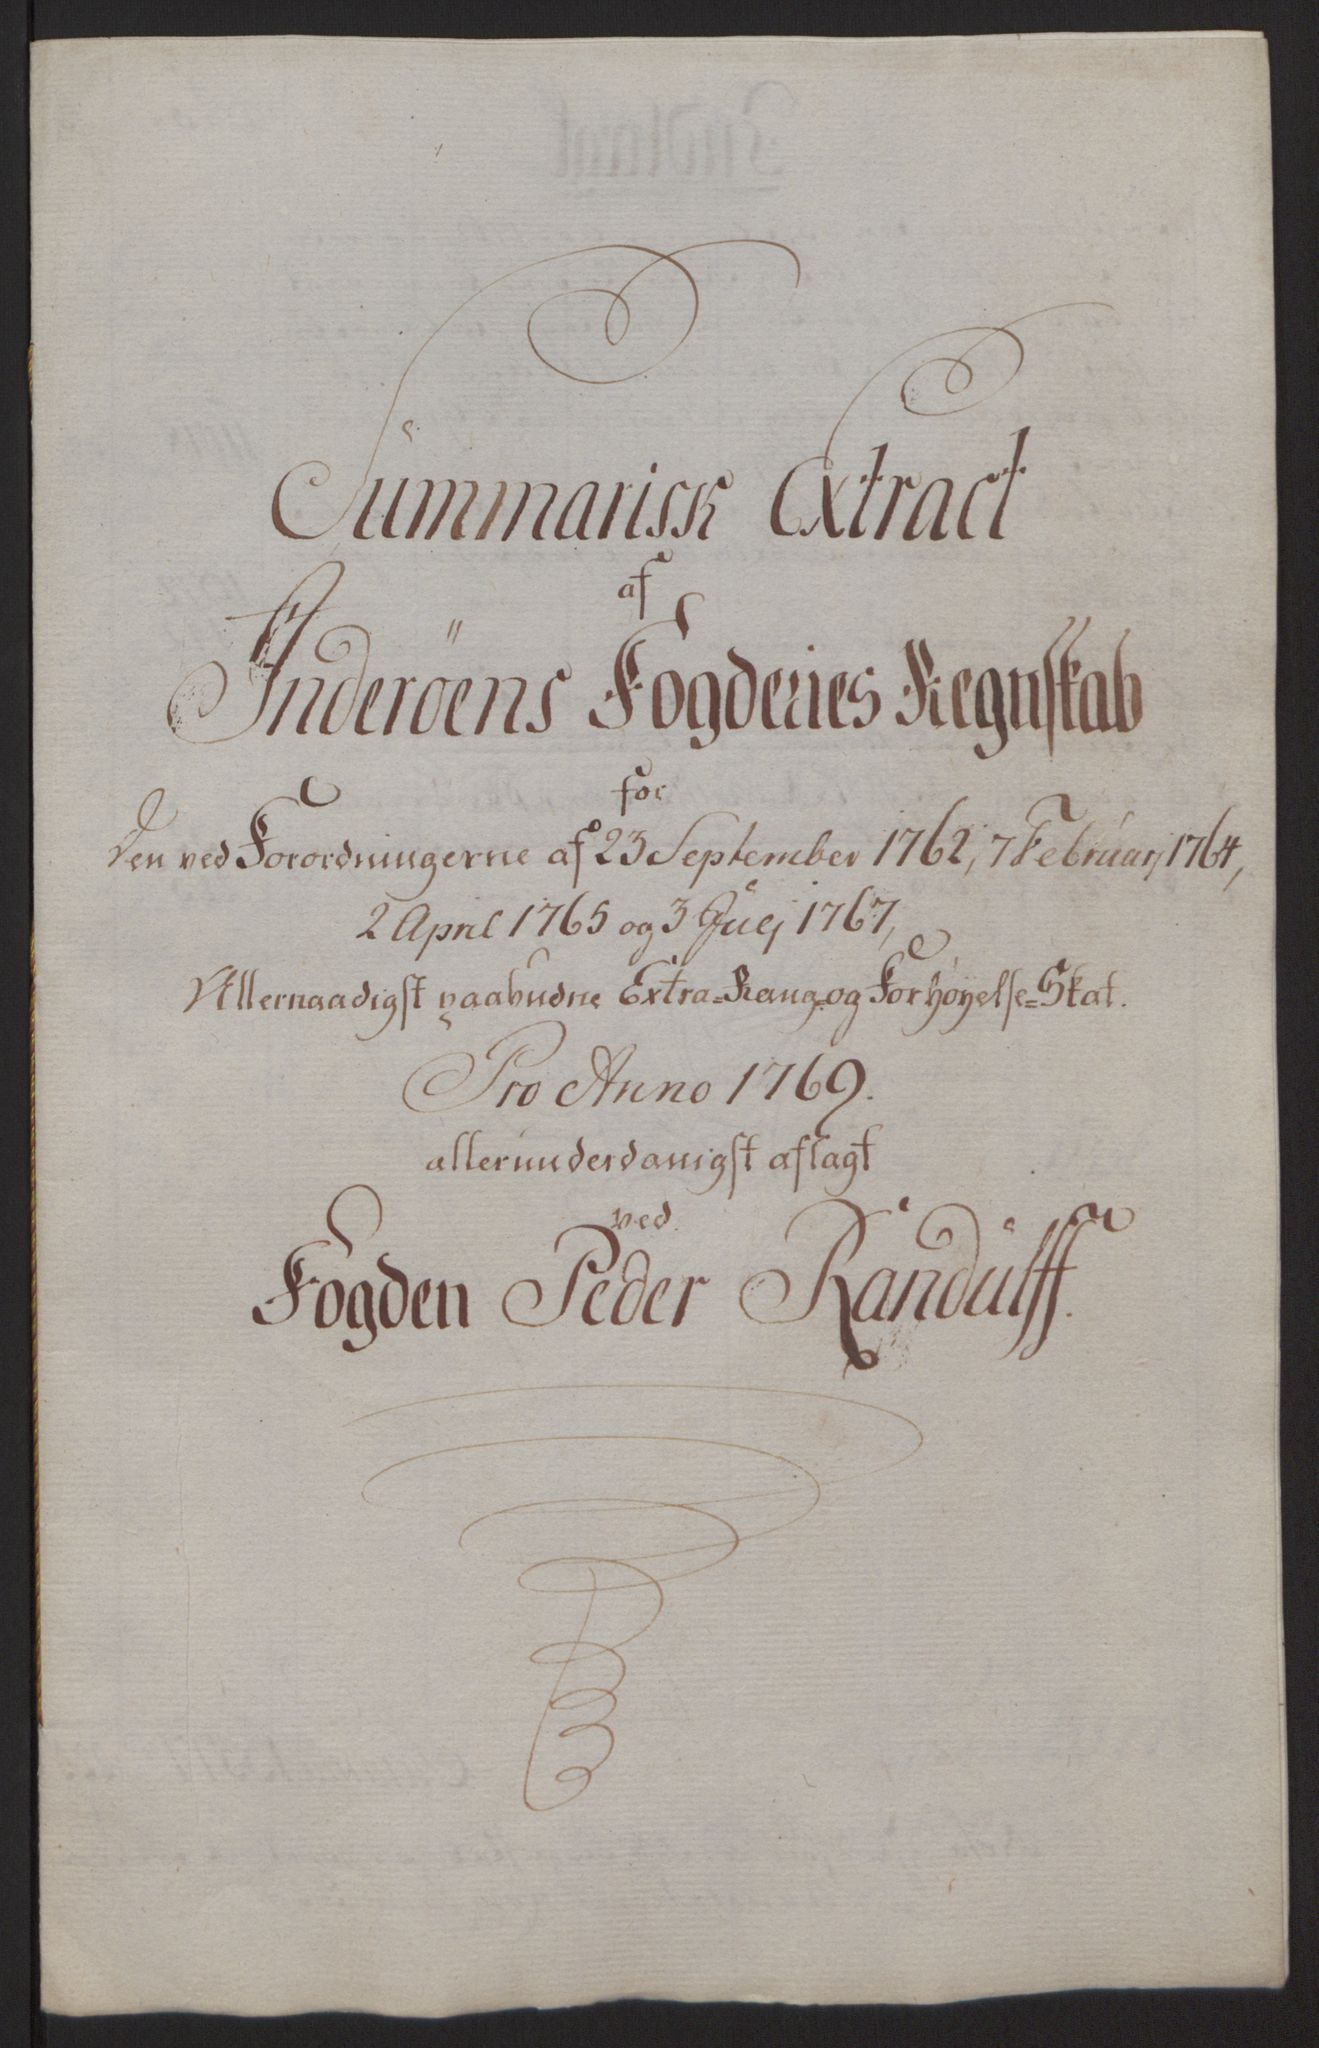 Summarisk Extract
af
Inderöens Fogderies Regnskab
for
Den ved Forordningerne af 23 September 1762, 7 Februarj 1764,
2 April 1765 og 3 Julj 1767,
Allernaadigst paabudne Extra-Rang-og Forhöyelse-Skat.
Pro Anno 1769.
allerunderdanigst aflagt
ved
Fogden Peder Randulff.